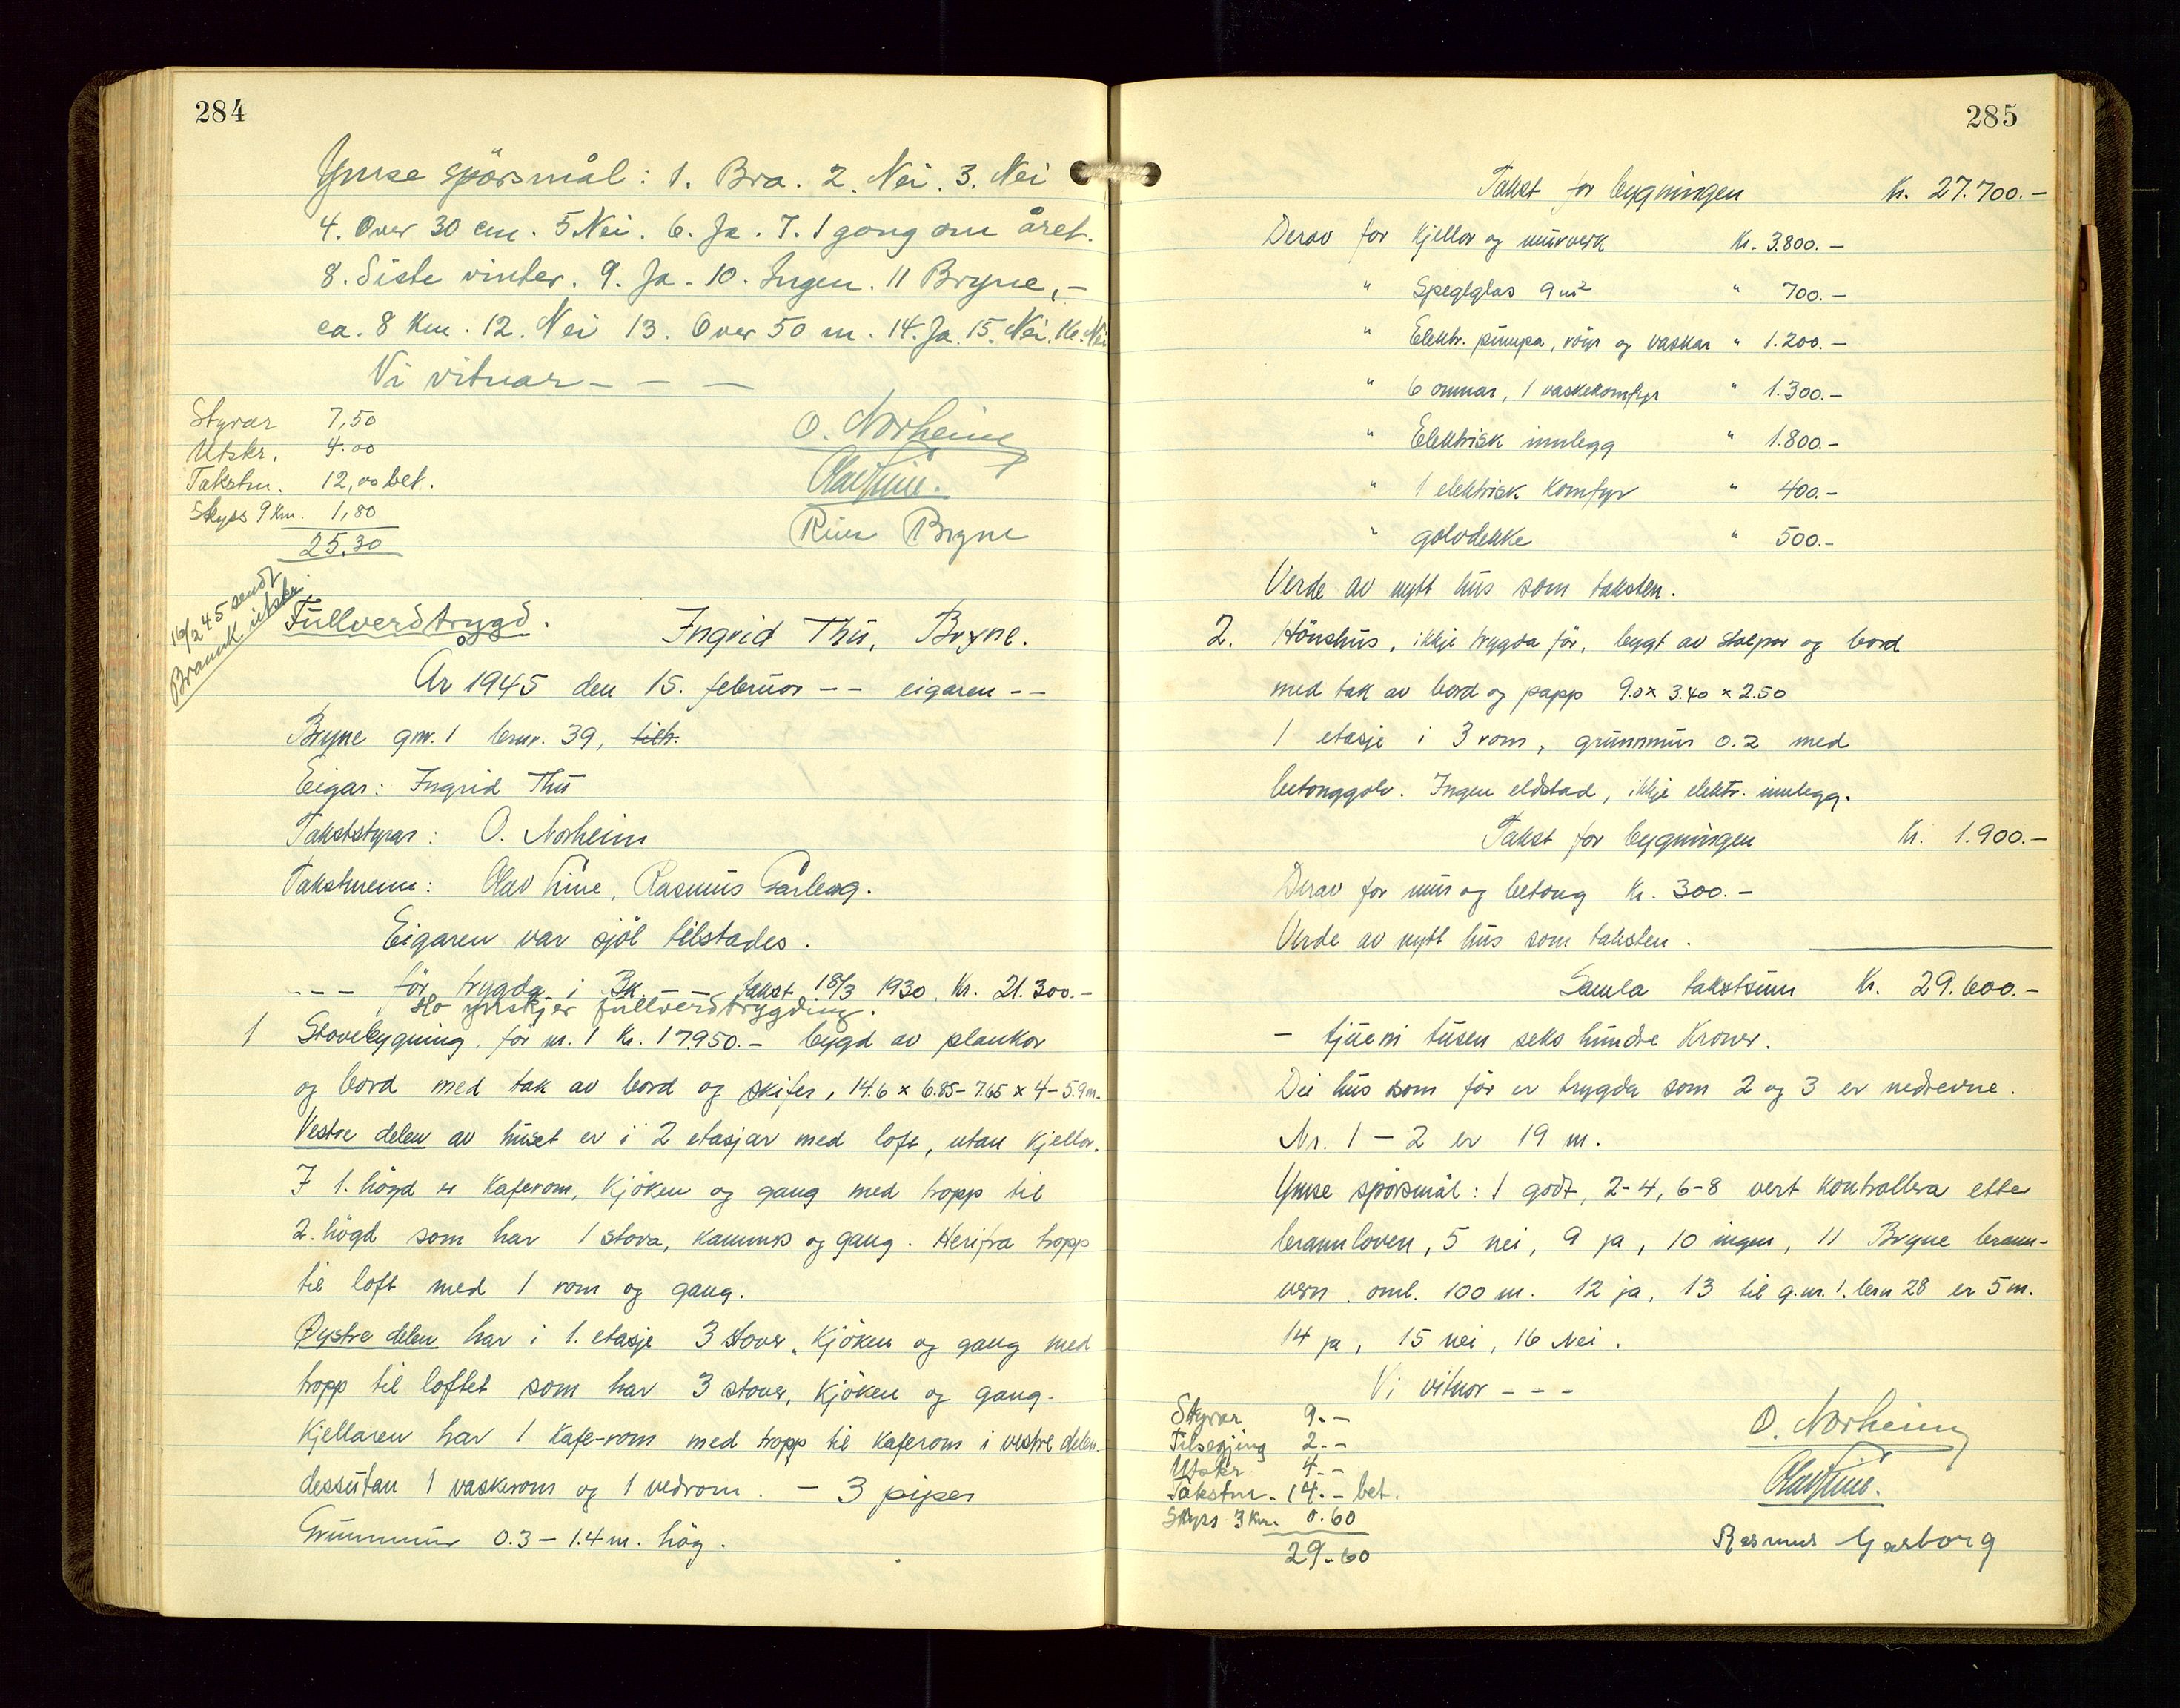 284
Ymse spörsmål: 1. Bra. 2. Nei. 3. Nei
4. Over 30 cm. 5 Nei. 6. Ja. 7. 1 gong om året.
8. Siste vinter. 9. Ja. 10. Ingen. 11 Bryne, -
ca. 8 km. 12. Nei 13. Over 50 m. 14. Ja. 15. Nei. 16. Nei
Vi vitnar - - -
Styrar 7,50
Utskr. 4.00
Takstm. 12,00 bet.
Skyss 9 km. 1,80
25,30
O. Norheim
Olav Line.
Bryne
16/2 45 sendt
Brannk. utskr.
Fullverdtrygd. Ingrid Thu, Bryne.
År 1945 den 15. februar - - eigaren - -
Bryne gnr. 1 bnr. 39,
Eigar: Ingrid Thu
Takststyrar: O. Norheim
Takstmenn: Olav Line, Rasmus Garborg.
Eigaren var sjöl tilstades.
- - - för trygda i Bk. - - takst 18/3 1930. Kr. 21.300.-
Ho ynskjer fullverdtrygding.
1 Stovebygning, för nr. 1 Kr. 17950.- bygd av plankor
og bord med tak av bord og skifer, 14.6 x 6.85-7.65 x 4-5.9 m.
Vestre delen av huset er i 2 etasjar med loft, utan kjellar.
I 1. högd er kaferom, kjöken og gang med tropp til
2. högd som har 1 stova, kammers og gang. Herifra tropp
til loft med 1 rom og gang.
Øystre delen har i 1. etasje 3 stover, kjöken og gang med
tropp til loftet som har 3 stover, kjöken og gang.
Kjellaren har 1 kafe-rom med tropp til kaferom i vestre delen
dessutan 1 vaskerom og 1 vedrom. - 3 piper
Grunnmur 0.3 - 1.4 m. høg.
285
Takst for bygningen Kr. 27.700.-
Derav for kjellar og murverk Kr. 3.800.-
" Speglglas 9 m² " 700.-
" Elektr. pumpa, röyr og vaskar " 1.200.-
" 6 omnar, 1 vaskekomfyr " 1.300.-
" Elektrisk innlegg " 1.800.-
" 1 elektrisk komfyr " 400.-
" golvdekke " 500.-
Verde av nytt hus som taksten.
2. Hönshus, ikkje trygda för, bygt av stolpar og bord
med tak av bord og papp 9.0 x 3.40 x 2.50
1 etasje i 3 rom, grunnmur 0.2 med
betonggolv. Ingen eldstad, ikkje elektr. innlegg.
Takst for bygningen Kr. 1.900.-
Derav for mur og betong Kr. 300.-
Verde av nytt hus som taksten.
Samla takstsum Kr. 29.600.-
- tjueni tusen seks hundre kroner.
Dei hus som för er trygda som 2 og 3 er nedrevne.
Nr. 1 - 2 er 19 m.
Ymse spörsmål: 1 godt, 2-4, 6-8 vert kontrollera etter
brannloven, 5 nei, 9 ja, 10 ingen, 11 Bryne brann-
vern. oml. 100 m. 12 ja, 13 til g.nr. 1. bnr 28 er 5 m.
14 ja, 15 nei, 16 Nei.
Vi vitnar - - -
Styrar 9.-
Tilsegjing 2.-
Utskr 4.-
Takstm. 14.- bet.
Skyss 3 km. 0.60
29.60
O. Norheim
Olav Line.
Rasmus Garborg